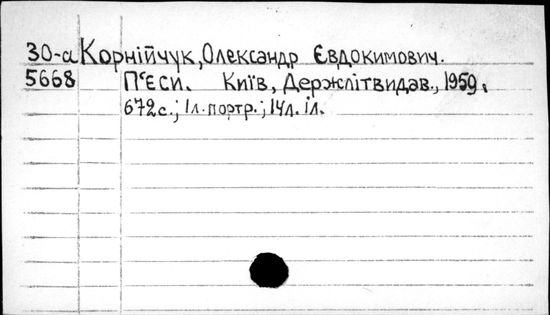 30-а Корнійчук, Олександр Євдокимович.
5668 П'єси. Київ, Держлітвидав., 1959.
672с.; 1л. портр.; 14л. іл.